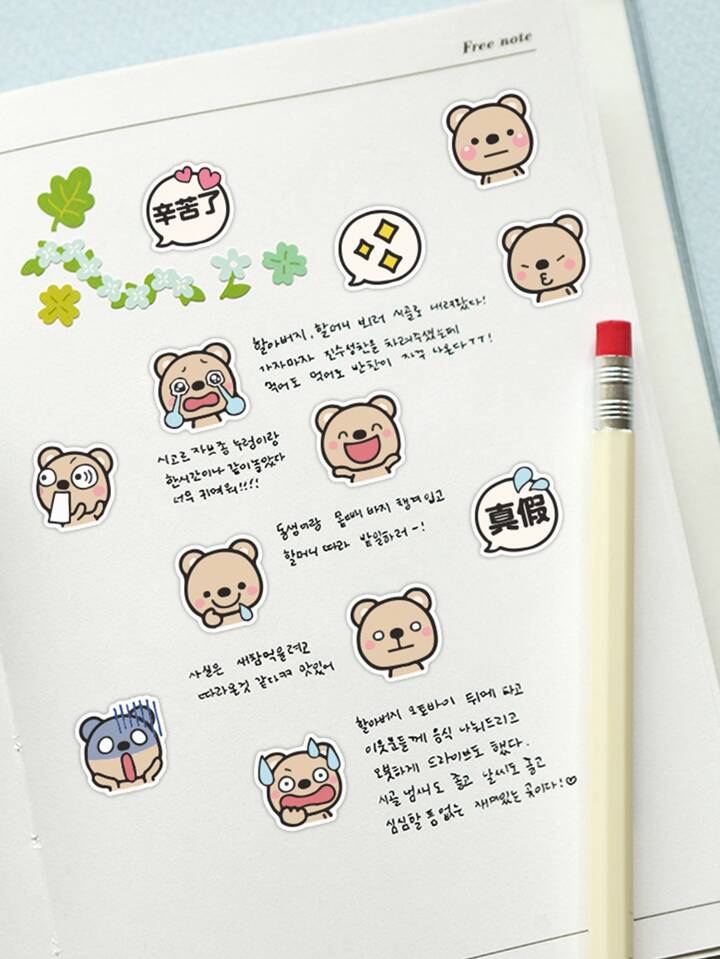 Free note
辛苦了
할아버지, 할머니 뵈러 시골로 내려왔다!
가자마자 진수성찬을 차려주셨는데
먹어도 먹어도 반찬이 자꾸 나온다ㅜㅜ!
시고르자브종 누렁이랑
한시간이나 같이놀았다
너무 귀여워!!!!
真假
동생이랑 몸빼바지 챙겨입고
할머니 따라 밭일하러~!
사실은 새참먹을려고
따라온것 같다ㅋㅋ 맛있어
할아버지 오토바이 뒤에 타고
이웃분들께 음식 나눠드리고
오붓하게 드라이브도 했다.
시골 냄새도 좋고 날씨도 좋고
심심할 틈 없는 재미있는 곳이다!♡